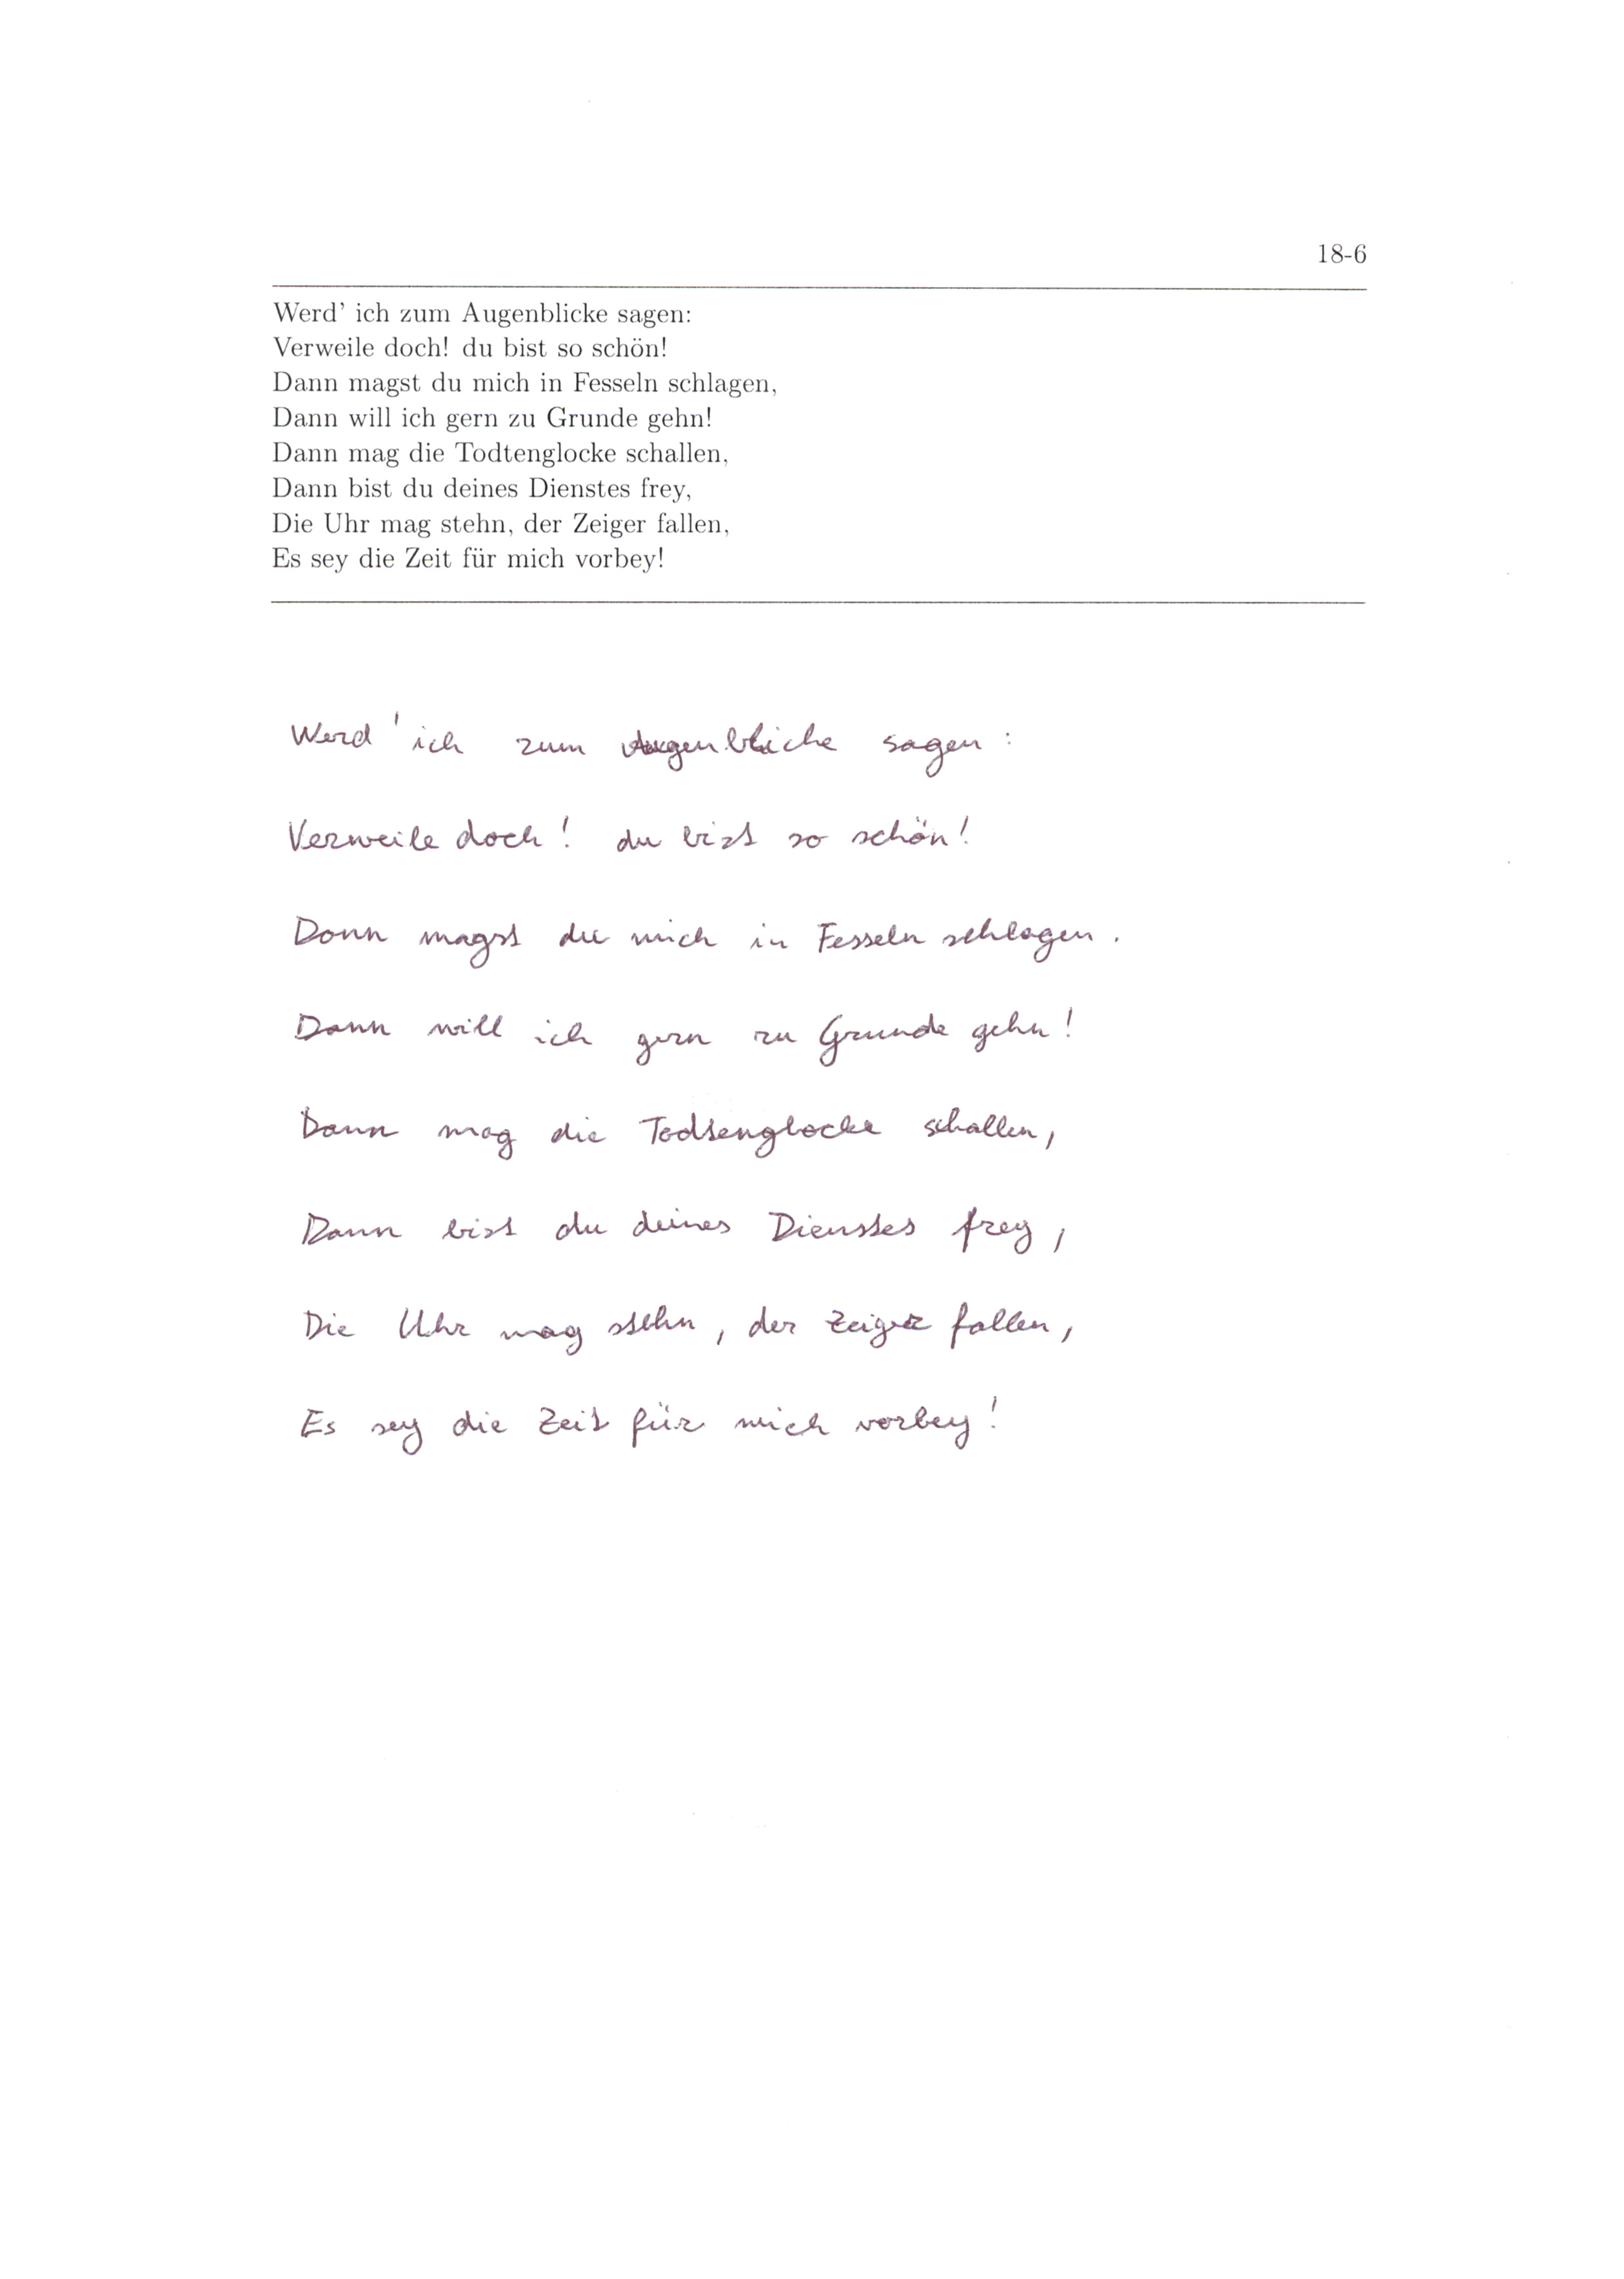 18-6
Werd' ich zum Augenblicke sagen:
Verweile doch! du bist so schön!
Dann magst du mich in Fesseln schlagen,
Dann will ich gern zu Grunde gehn!
Dann mag die Todtenglocke schallen,
Dann bist du deines Dienstes frey,
Die Uhr mag stehn, der Zeiger fallen,
Es sey die Zeit für mich vorbey!
Werd' ich zum Augenblicke sagen:
Verweile doch! du bist so schön!
Dann magst du mich in Fesseln schlagen.
Dann will ich gern zu Grunde gehn!
Dann mag die Todtenglocke schallen,
Dann bist du deines Dienstes frey,
Die Uhr mag stehn, der Zeiger fallen,
Es sey die Zeit für mich vorbey!